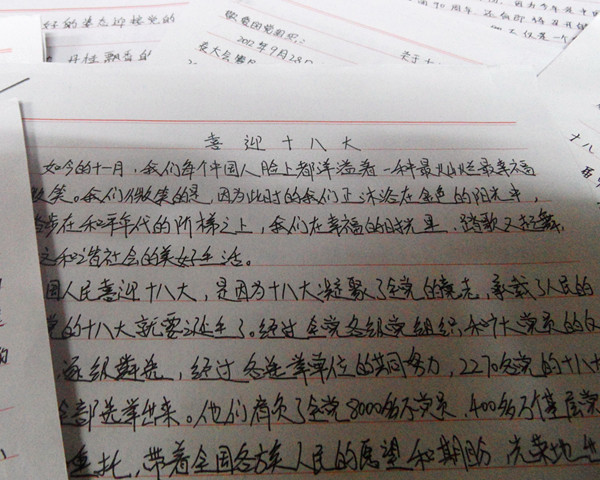 好的姿态迎接党的
敬爱的党组织：
2012年9月28日
喜迎十八大
如今的十一月，我们每个中国人脸上都洋溢着一种最灿烂最幸福
微笑。我们微笑的是，因为此时的我们正沐浴在金色的阳光中，
步在和平年代的阶梯之上，我们在幸福的时光里，踏歌又起舞，
和谐社会的美好生活。
国人民喜迎十八大，是因为十八大凝聚了全党的意志，承载了人民的
党的十八大就要诞生了。经过全党各级党组织和广大党员的
逐级遴选，经过各选举单位的共同努力，2270名党的十八大
全部选举出来。他们肩负了全党8000多万党员、400多万个基层党
重托，带着全国各族人民的愿望和期盼，光荣地